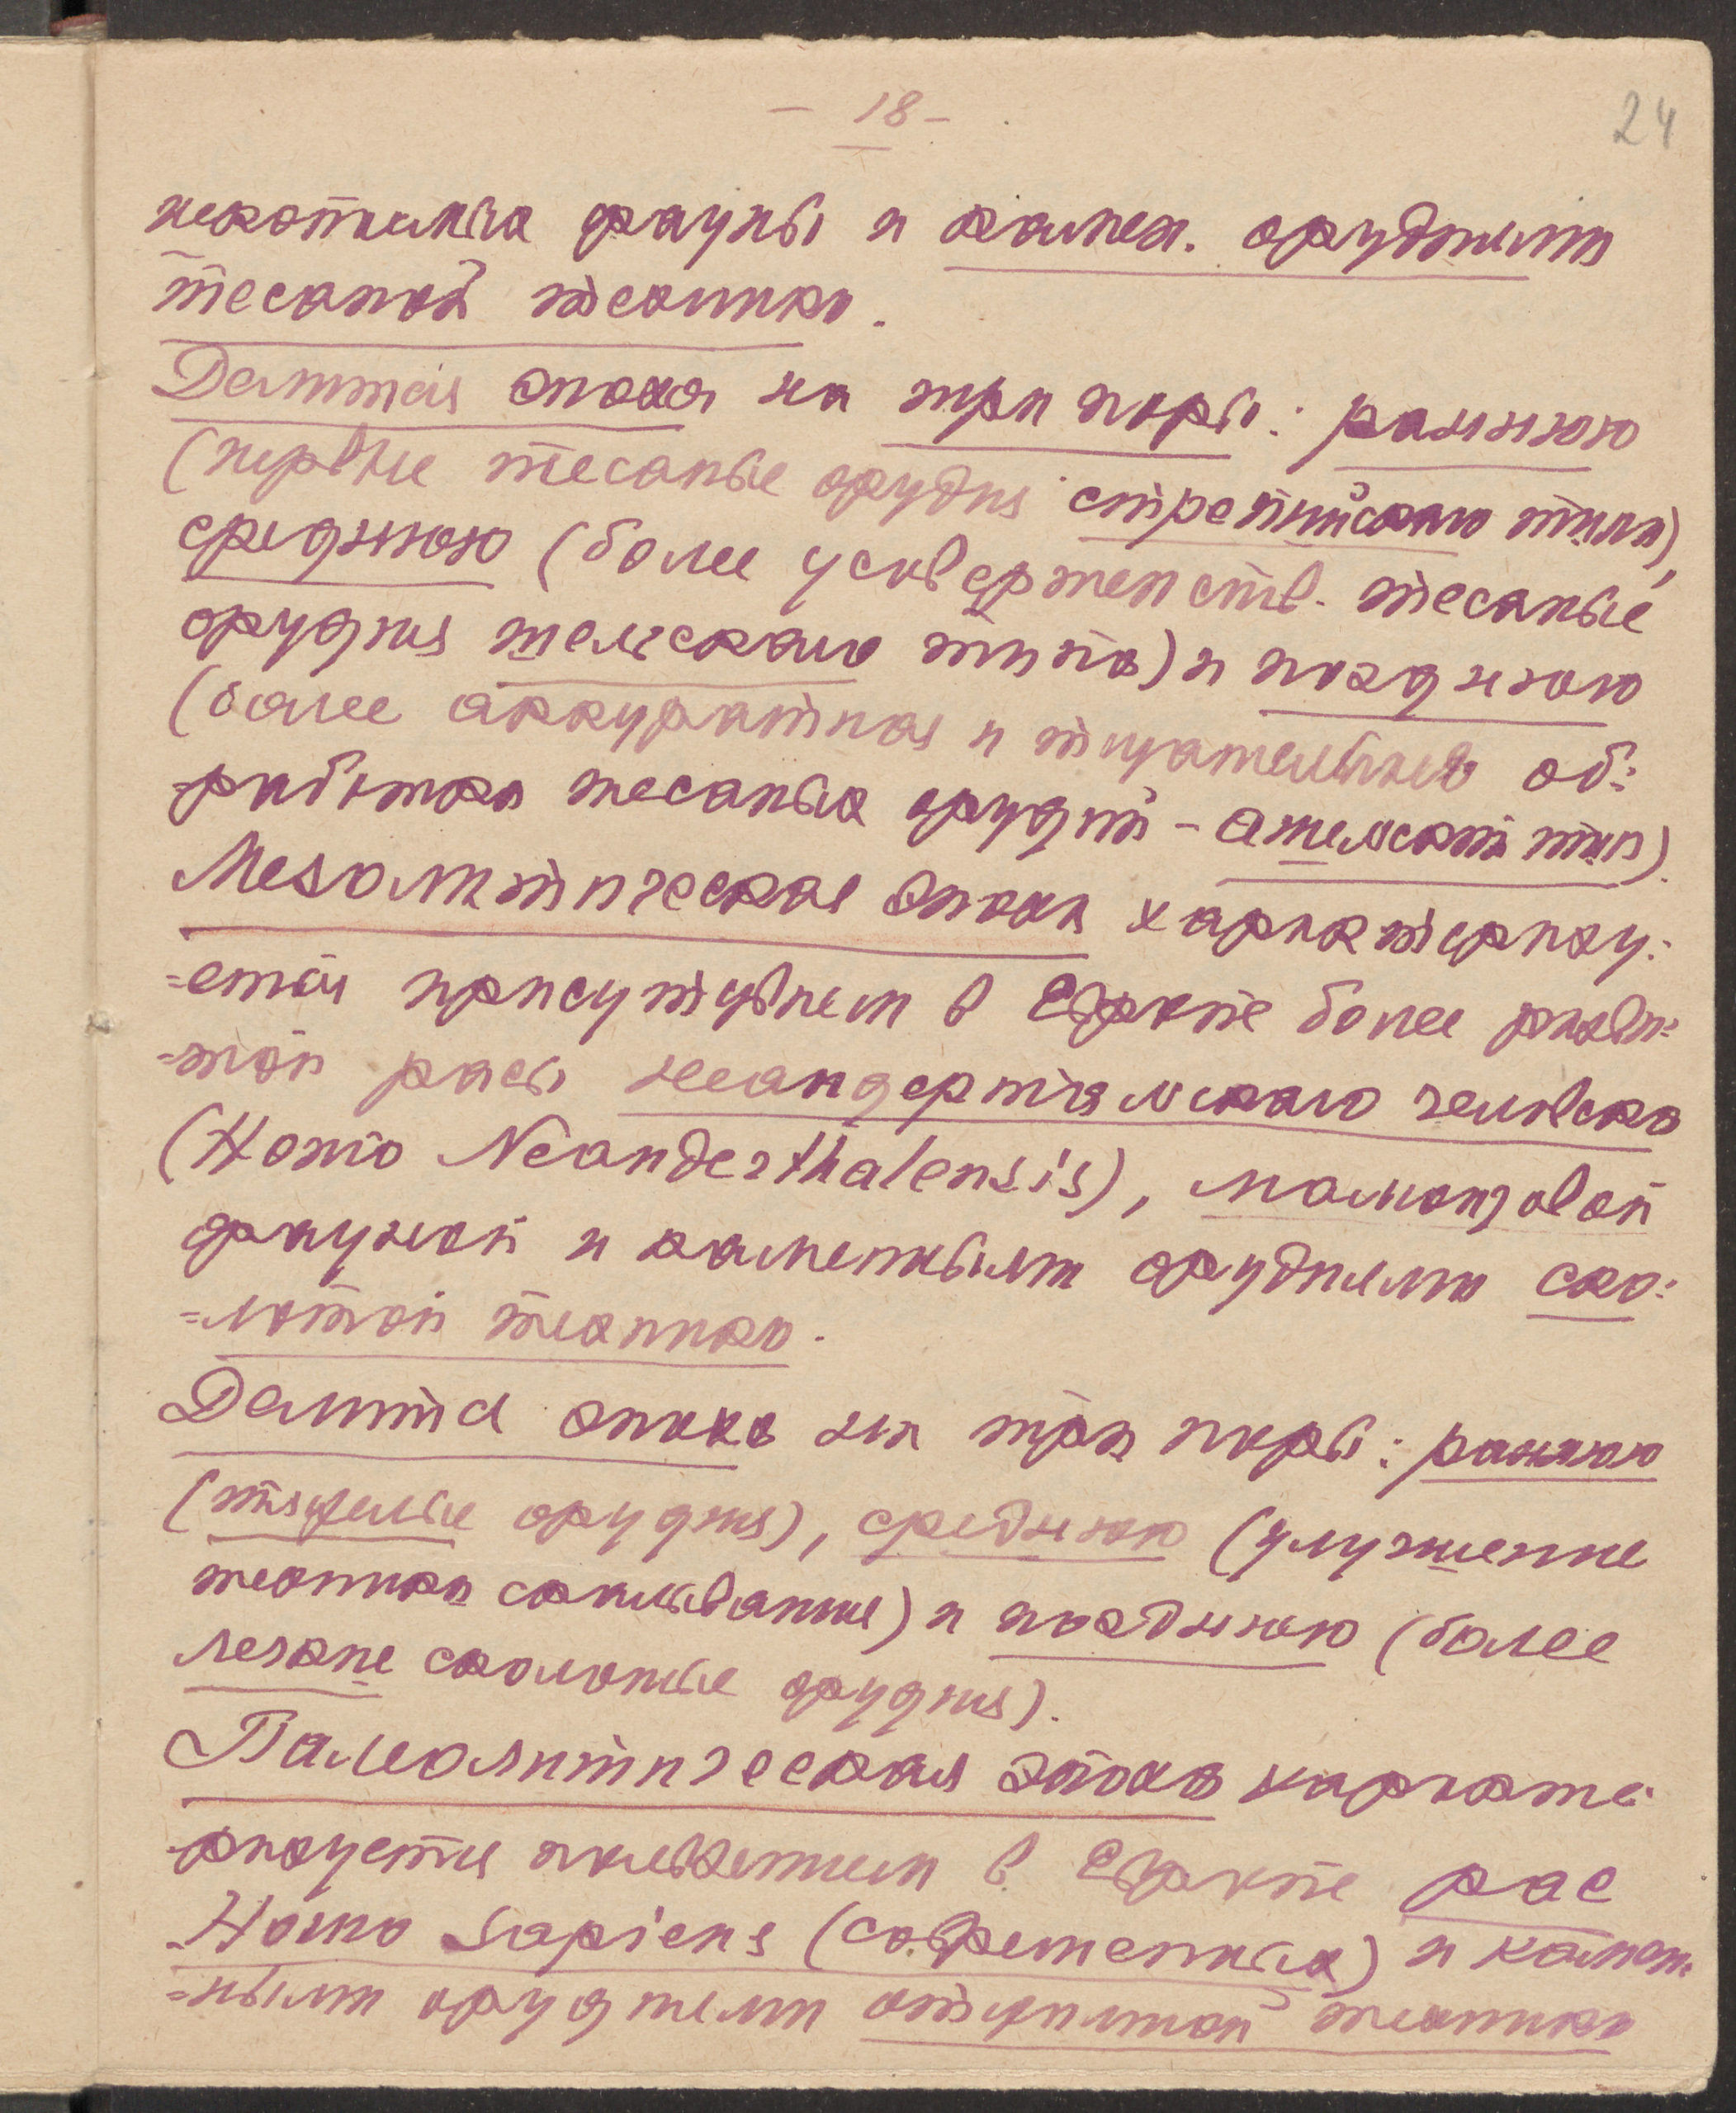 - 18 -
24
фауны и камен. орудиями
тесаной техники.
Делится эпоха на три поры: раннюю
(первые тесаные орудия стрепийского типа),
среднюю (более усовершенств. тесаные
орудия шельского типа) и позднюю
(более аккуратная и тщательная об=
=работка тесаных орудий - ашельский тип).
Мезолитическая эпоха характеризу=
=ется присутствием в Европе более разви=
=той расы неандертальского человека
(Homo Neanderthalensis), мамонтовой
фауной и каменными орудиями ско=
=лотой техники.
Делится эпоха на три поры: раннюю
(тяжелые орудия), среднюю (улучшение
техники скалывания) и позднюю (более
легкие сколотые орудия).
Палеолитическая эпоха характе-
-ризуется появлением в Европе рас
Homo Sapiens (современных) и камен=
=ными орудиями отжимной техники